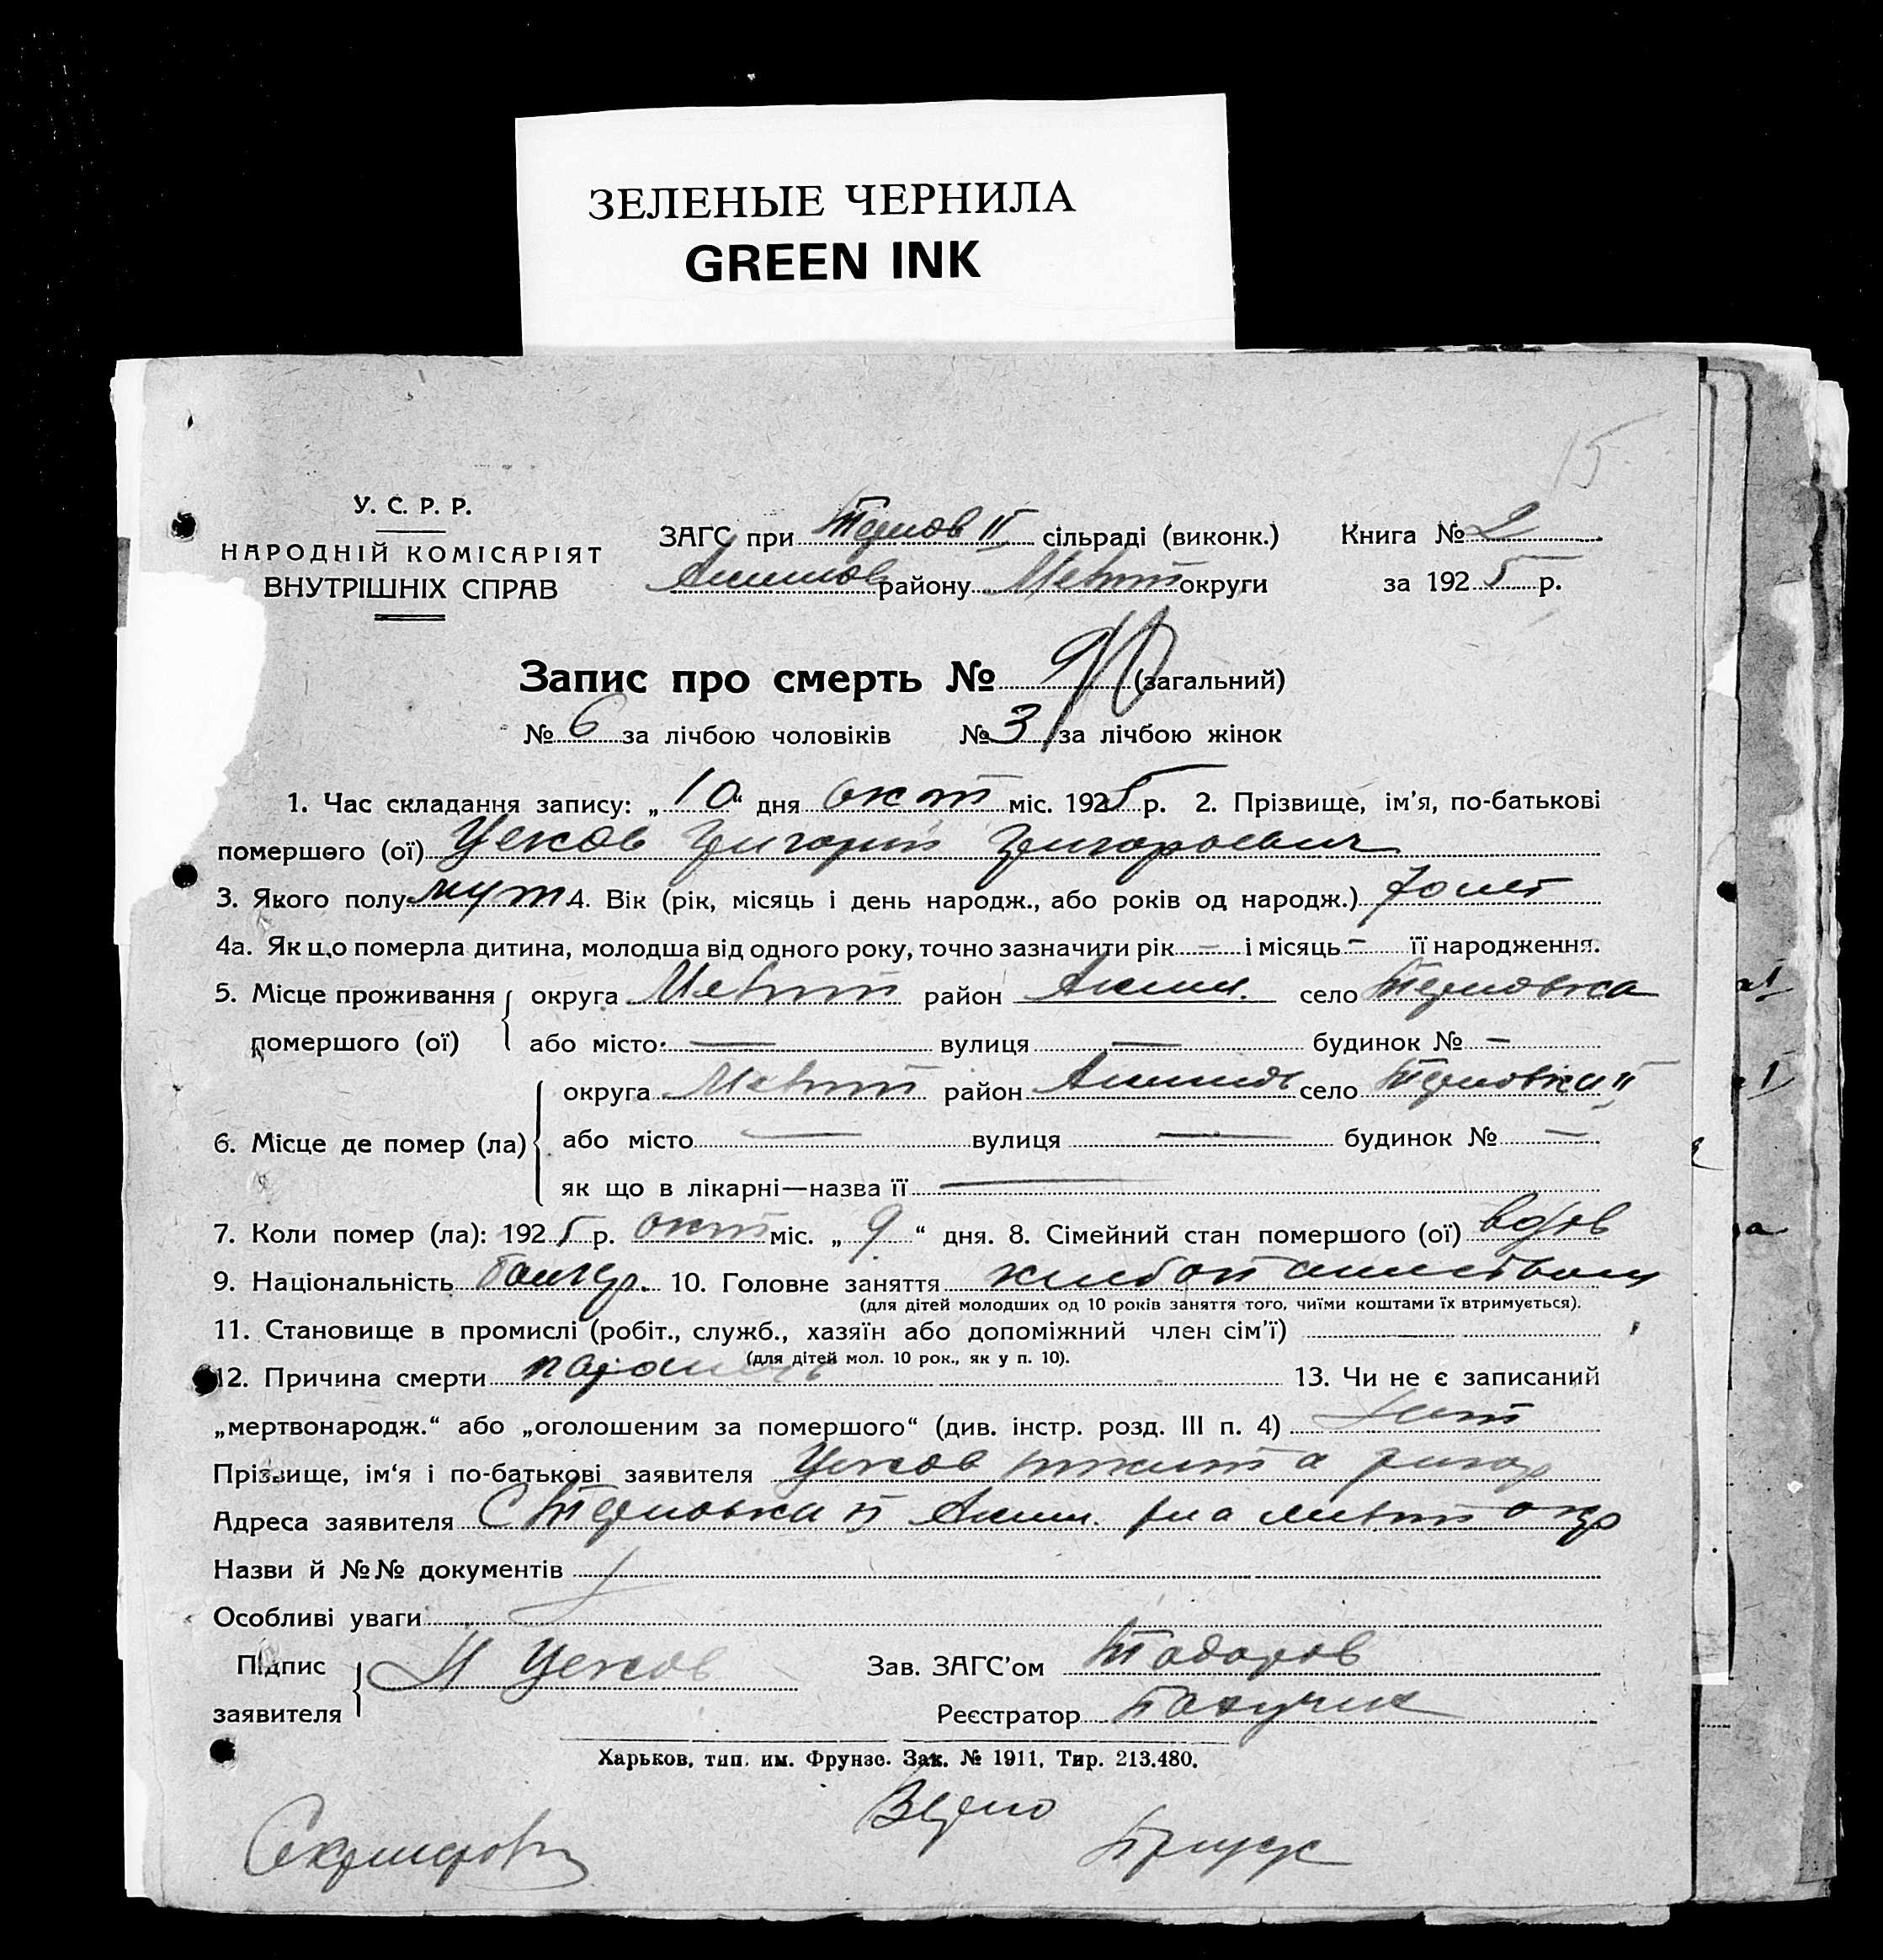 ЗЕЛЕНЫЕ ЧЕРНИЛА
GREEN INK
15
У. С. Р. Р.
НАРОДНІЙ КОМІСАРІЯТ
ВНУТРІШНІХ СПРАВ
ЗАГС при Тернов II сільраді (виконк.) Книга № 2
Акимов району Меліт округи за 1925 р.
Запис про смерть № 9/ (загальний)
№ 6 за лічбою чоловіків № 3 за лічбою жінок
1. Час складання запису: „10“ дня окт міс. 1925 р. 2. Прізвище, ім'я, по-батькові
помершого (ої) Ценов Григорий Григорьевич
3. Якого полу муж 4. Вік (рік, місяць і день народж., або років од народж.) 70 лет
4а. Як що померла дитина, молодша від одного року, точно зазначити рік — і місяць — її народження.
5. Місце проживання помершого (ої) округа Меліт район Аким. село Терновка
або місто — вулиця — будинок № —
6. Місце де помер (ла) округа Меліт район Акимов село Терновка II
або місто — вулиця — будинок № —
як що в лікарні—назва її —
7. Коли помер (ла): 1925 р. окт міс. „9“ дня. 8. Сімейний стан помершого (ої) вдов
9. Національність болгар. 10. Головне заняття хлебопашеством
(для дітей молодших од 10 років заняття того, чиїми коштами їх втримується).
11. Становище в промислі (робіт., служб., хазяїн або допоміжний член сім'ї)
(для дітей мол. 10 рок., як у п. 10).
12. Причина смерти 13. Чи не є записаний
„мертвонародж.“ або „оголошеним за помершого“ (див. інстр. розд. III п. 4) нет
Прізвище, ім'я і по-батькові заявителя Ценов Никита Григор
Адреса заявителя С Терновка II Аким. р на меліт окр
Назви й №№ документів
Особливі уваги
Підпис заявителя Н Ценов Зав. ЗАГС'ом Тодоров
Реєстратор
Харьков, тип. им. Фрунзе. Зак. № 1911, Тир. 213.480.
Верно